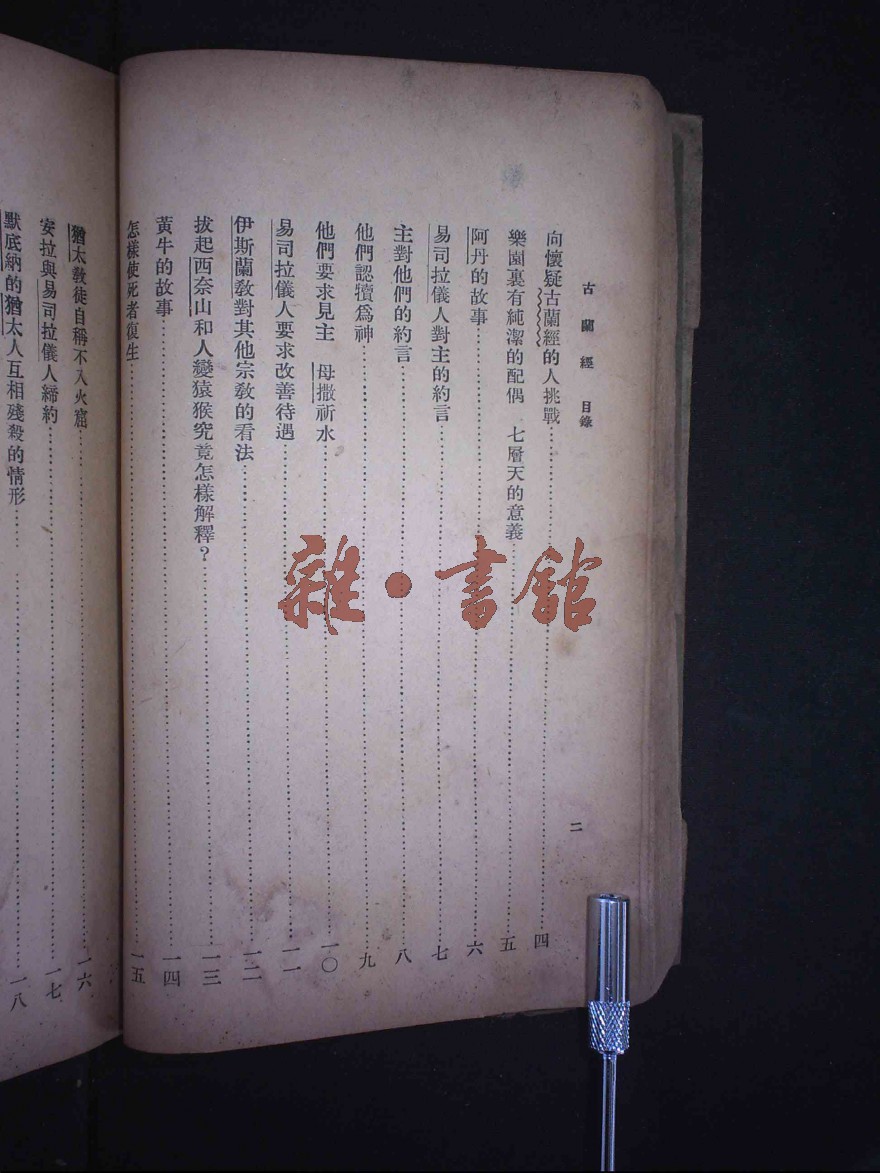 古蘭經 目錄
二
向懷疑古蘭經的人挑戰 四
樂園裏有純潔的配偶 七層天的意義 五
阿丹的故事 六
易司拉儀人對主的約言 七
主對他們的約言 八
他們認犢爲神 九
他們要求見主 母撒祈水 一〇
易司拉儀人要求改善待遇 一一
伊斯蘭教對其他宗教的看法 一二
拔起西奈山和人變猿猴究竟怎樣解釋？ 一三
黃牛的故事 一四
怎樣使死者復生 一五
猶太教徒自稱不入火窟 一六
安拉與易司拉儀人締約 一七
默底納的猶太人互相殘殺的情形 一八
雜·書館